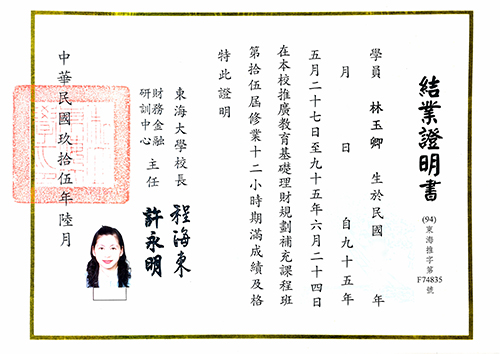 結業證明書
(94)東海推字第F74835號
學員 林玉卿 生於民國 年
月 日 自九十五年
五月二十七日至九十五年六月二十四日
在本校推廣教育基礎理財規劃補充課程班
第拾伍屆修業十二小時期滿成績及格
特此證明
東海大學校長 程海東
財務金融研訓中心 主任 許永明
中華民國玖拾伍年陸月